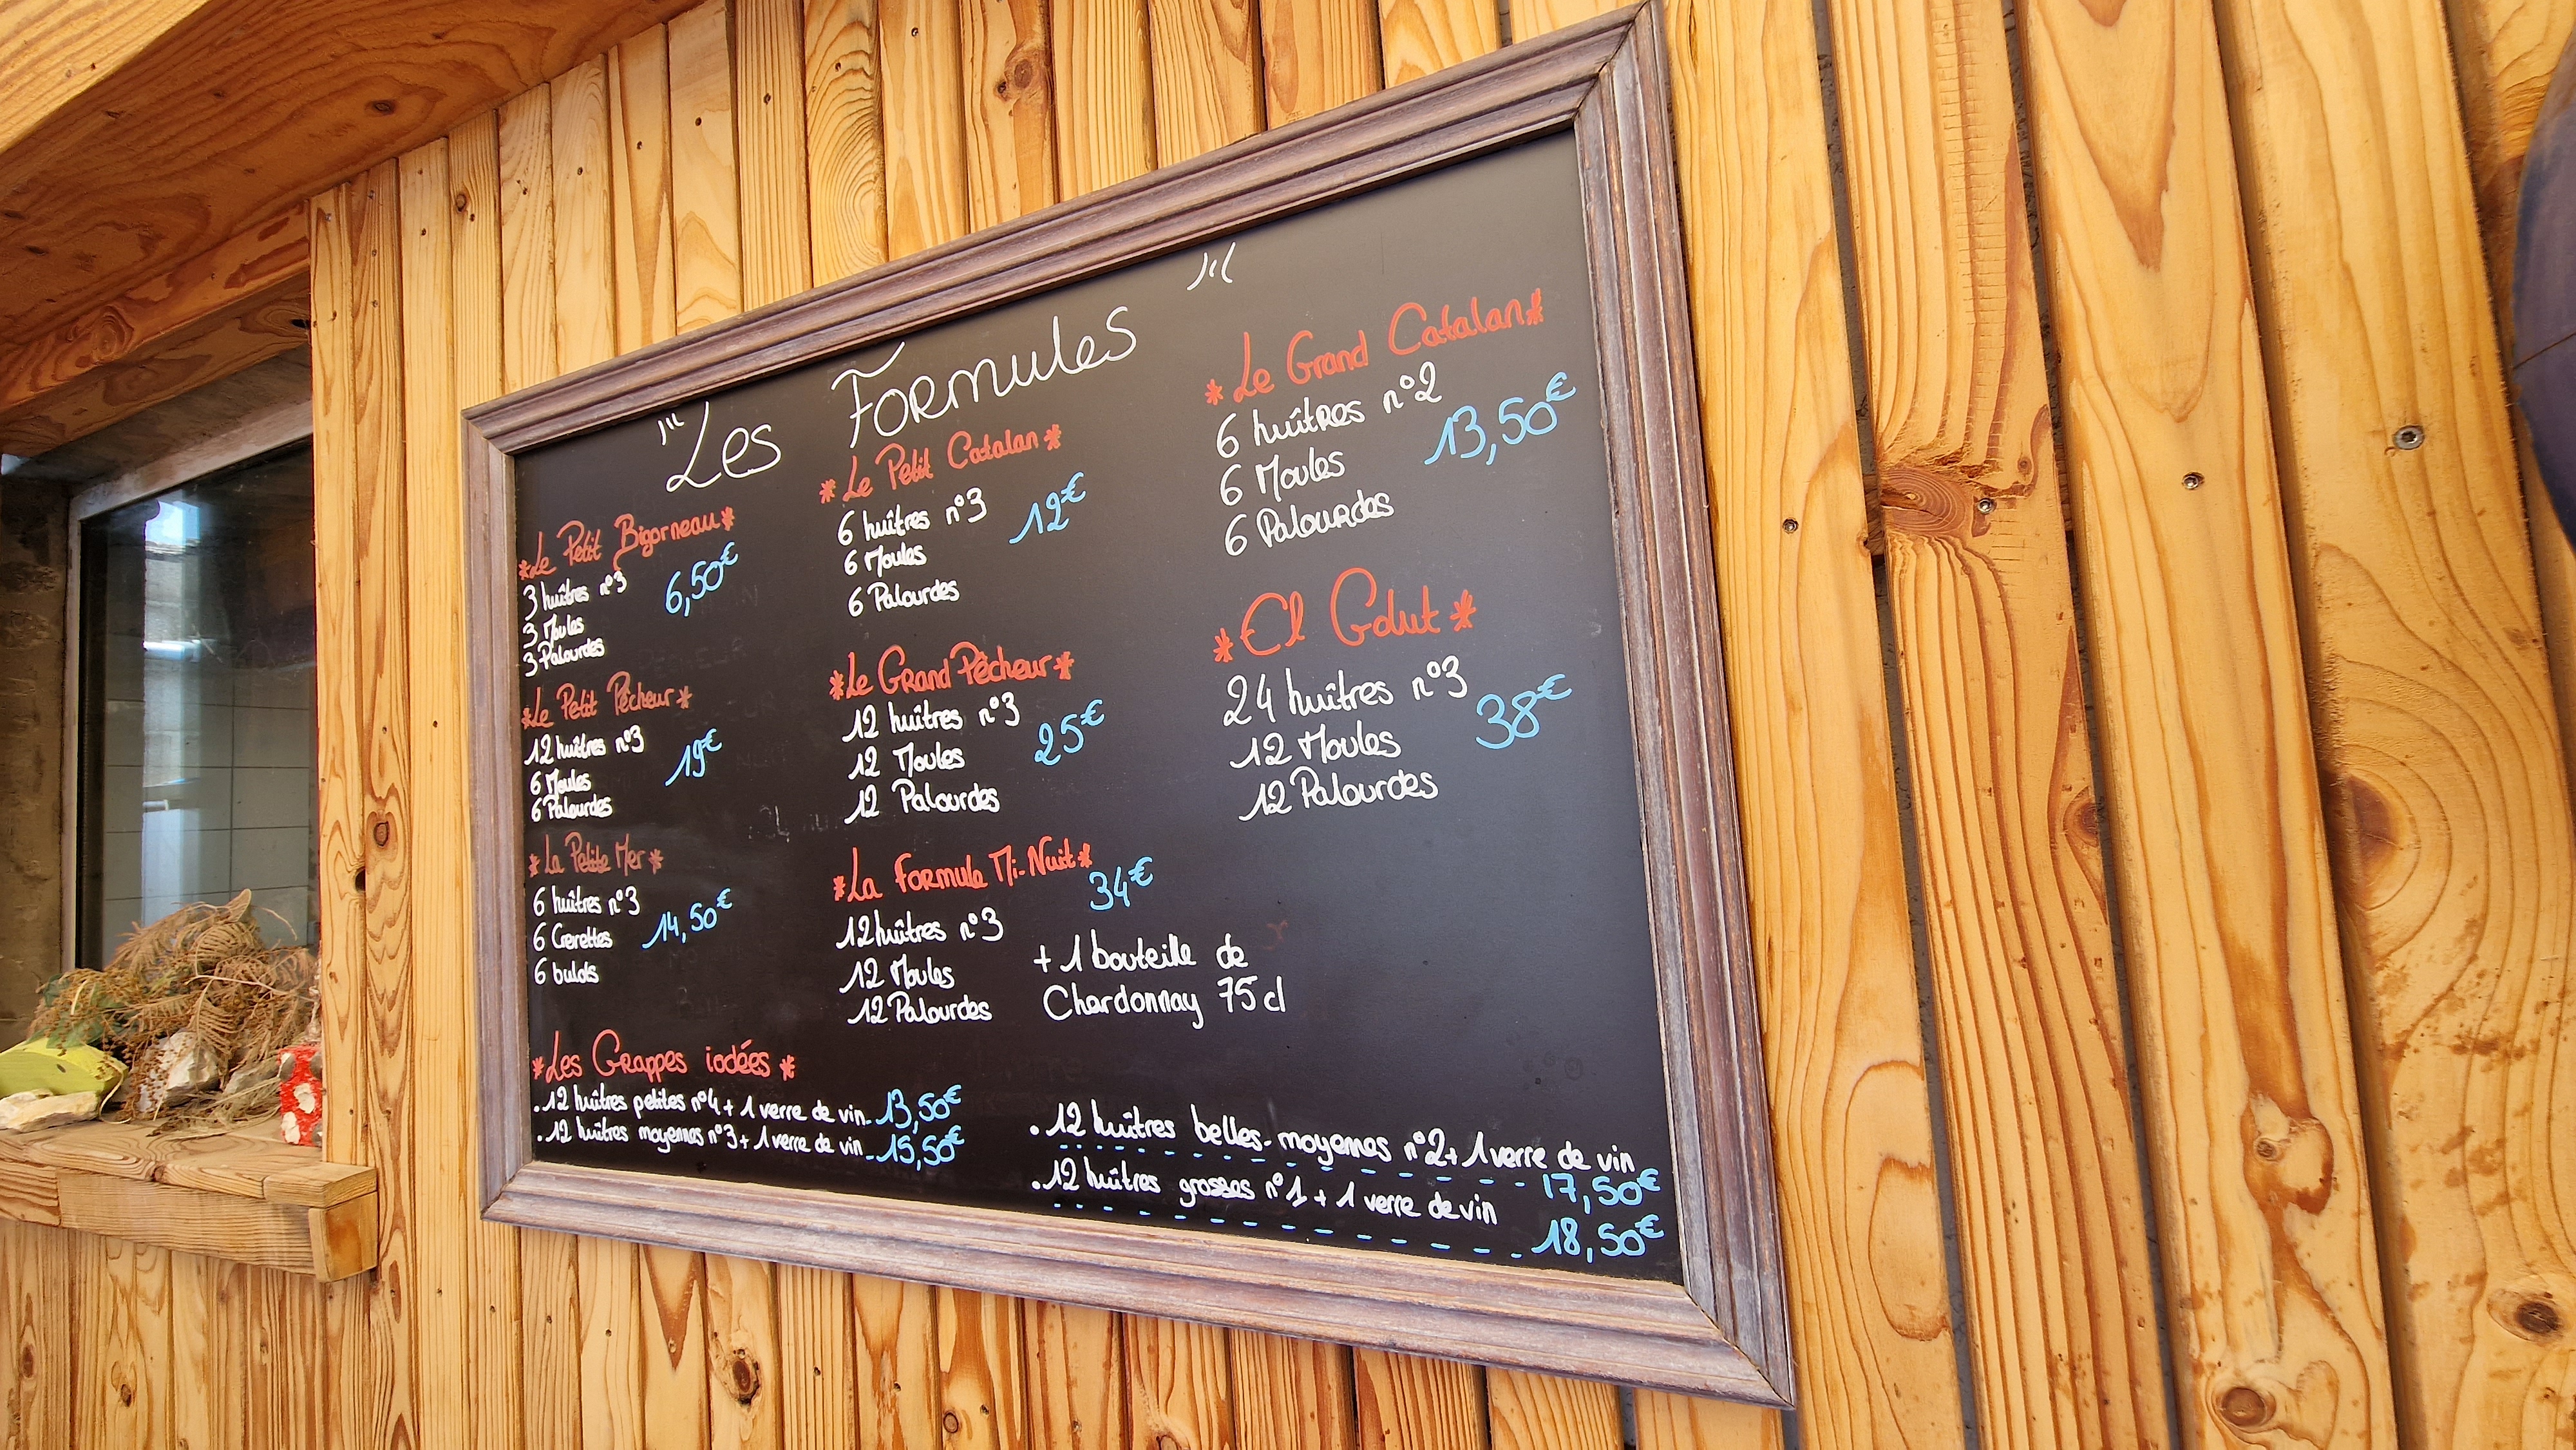 Les Formules
*Le Petit Bigorneau*
3 huîtres n°3
6,50€
3 Moules
3 Palourdes
*Le Petit Pêcheur*
12 huîtres n°3
19€
6 Moules
6 Palourdes
*La Petite Mer*
6 huîtres n°3
6 Crevettes
14,50€
6 bulots
*Le Petit Catalan*
6 huîtres n°3
12€
6 Moules
6 Palourdes
*Le Grand Pêcheur*
12 huîtres n°3
12 Moules
25€
12 Palourdes
*La Formule Mi-Nuit*
34€
12 huîtres n°3
12 Moules
12 Palourdes
+ 1 bouteille de
Chardonnay 75 cl
*Le Grand Catalan*
6 huîtres n°2
13,50€
6 Moules
6 Palourdes
*El Golut*
24 huîtres n°3
38€
12 Moules
12 Palourdes
*Les Grappes iodées*
.12 huîtres petites n°4 + 1 verre de vin 13,50€
.12 huîtres moyennes n°3 + 1 verre de vin 15,50€
.12 huîtres belles-moyennes n°2 + 1 verre de vin
17,50€
.12 huîtres grosses n°1 + 1 verre de vin
18,50€